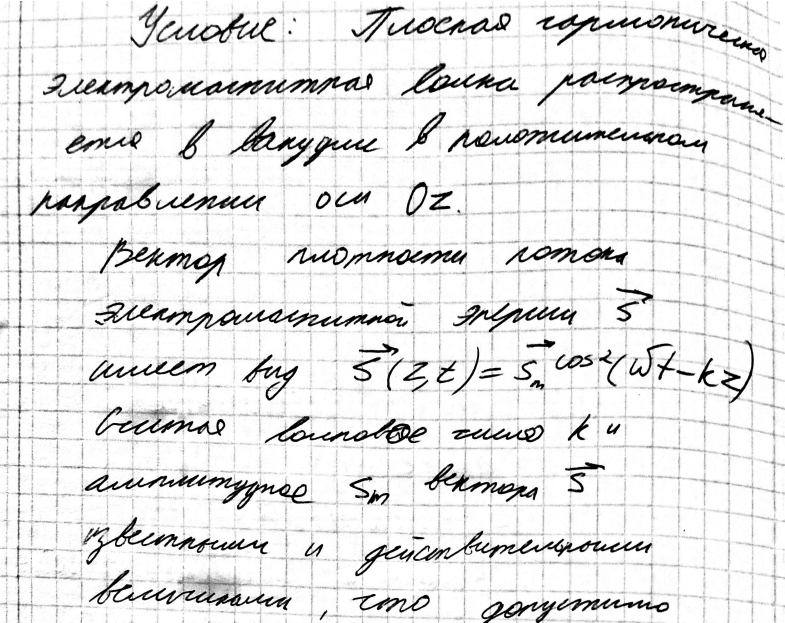 Условие: Плоская гармоническая
электромагнитная волна распространя-
ется в вакууме в положительном
направлении оси Oz.
Вектор плотности потока
электромагнитной энергии S⃗
имеет вид S⃗(z,t) = S⃗ₘ cos²(ωt-kz)
Считая волновое число k и
амплитудное Sₘ вектора S⃗
известными и действительными
величинами, что допустимо